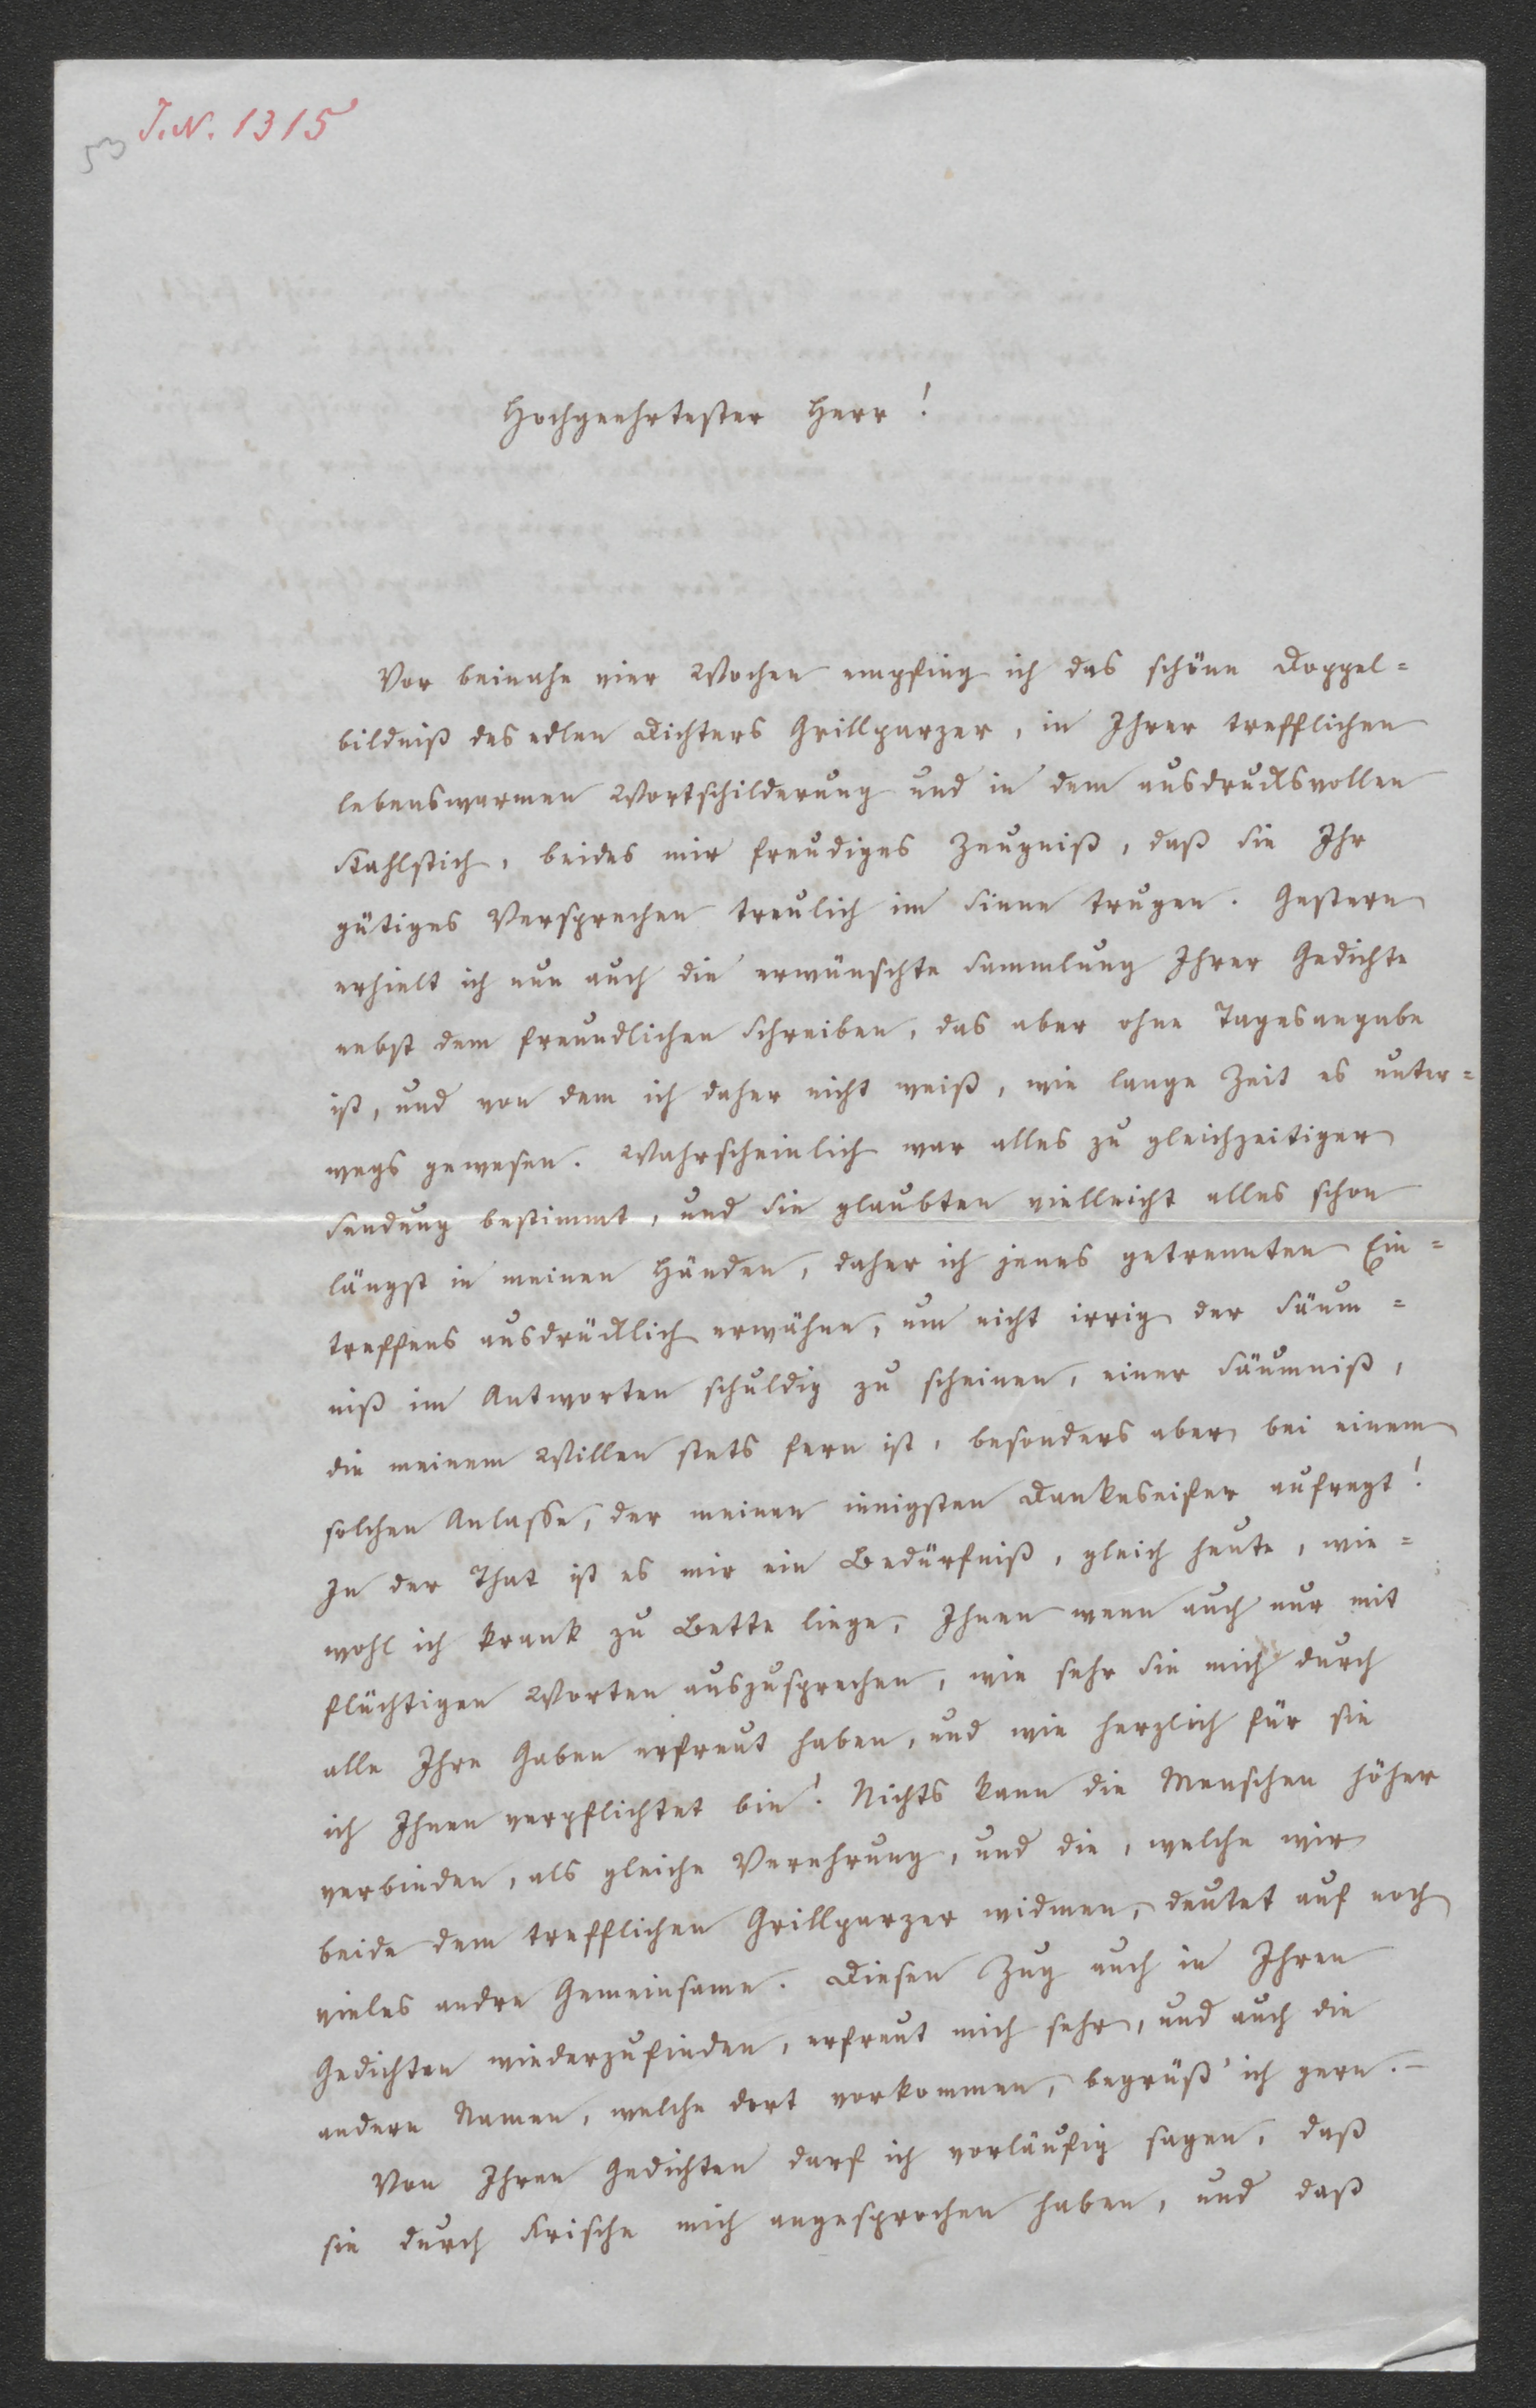 J.N. 1315
53
Hochgeehrtester Herr!
Vor beinahe vier Wochen empfing ich das schöne Doppel=
bildniß des edlen Dichters Grillparzer, in Ihrer trefflichen
lebenswarmen Wortschilderung und in dem ausdrucksvollen
Stahlstich, beides mir freudiges Zeugniß, daß Sie Ihr
gütiges Versprechen treulich im Sinne trugen. Gestern
erhielt ich nun auch die erwünschte Sammlung Ihrer Gedichte
nebst dem freundlichen Schreiben, das aber ohne Tagesangabe
ist, und von dem ich daher nicht weiß, wie lange Zeit es unter=
wegs gewesen. Wahrscheinlich war alles zu gleichzeitiger
Sendung bestimmt, und Sie glaubten vielleicht alles schon
längst in meinen Händen, daher ich jenes getrennten Ein=
treffens ausdrücklich erwähne, um nicht irrig der Säum=
niß im Antworten schuldig zu scheinen, einer Säumniß,
die meinem Willen stets fern ist, besonders aber bei einem
solchen Anlasse, der meinen innigsten Dankeseifer aufregt!
In der That ist es mir ein Bedürfniß, gleich heute, wie=
wohl ich krank zu Bette liege, Ihnen wenn auch nur mit
flüchtigen Worten auszusprechen, wie sehr Sie mich durch
alle Ihre Gaben erfreut haben, und wie herzlich für sie
ich Ihnen verpflichtet bin! Nichts kann die Menschen höher
verbinden, als gleiche Verehrung, und die, welche wir
beide dem trefflichen Grillparzer widmen, deutet auf noch
vieles andre Gemeinsame. Diesen Zug auch in Ihren
Gedichten wiederzufinden, erfreut mich sehr, und auch die
andern Namen, welche dort vorkommen, begrüß' ich gern.–
Von Ihren Gedichten darf ich vorläufig sagen, daß
sie durch Frische mich angesprochen haben, und daß